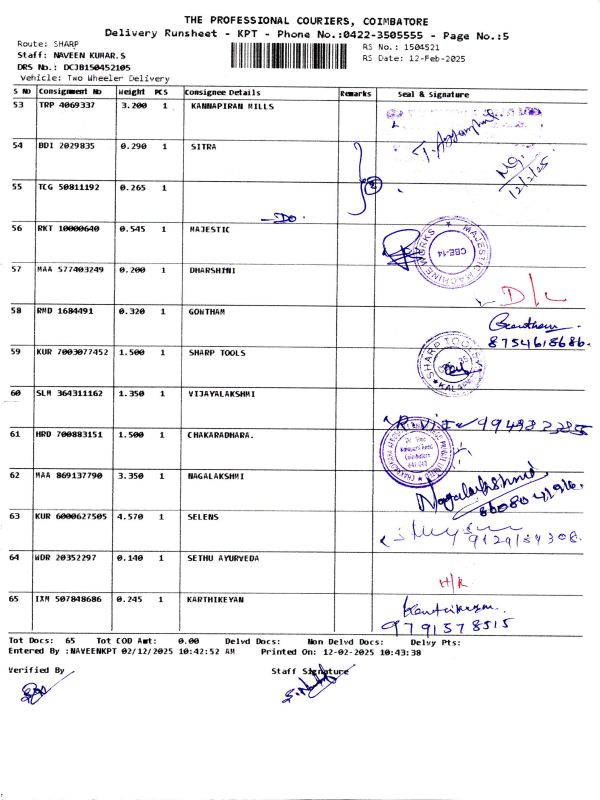 THE PROFESSIONAL COURIERS, COIMBATORE
Delivery Runsheet - KPT - Phone No.:0422-3505555 - Page No.:5
Route: SHARP
RS No.: 1504521
Staff: NAVEEN KUMAR.S
RS Date: 12-Feb-2025
DRS No.: DCJB150452105
Vehicle: Two Wheeler Delivery
S No Consignment No Weight PCS Consignee Details Remarks Seal & Signature
53 TRP 4069337 3.200 1 KANNAPIRAN MILLS
54 BDI 2029835 0.290 1 SITRA
12/2/25
55 TCG 50811192 0.265 1
-Do.
56 RKT 10000640 0.545 1 MAJESTIC
MAJESTIC MACHINE WORKS CBE-14
57 MAA 577403249 0.200 1 DHARSHINI
D/L
58 RMD 1684491 0.320 1 GONTHAM
Gowtham
8754618686.
59 KUR 7003077452 1.500 1 SHARP TOOLS
SHARP TOOLS
60 SLM 364311162 1.350 1 VIJAYALAKSHMI
61 HRD 700883151 1.500 1 CHAKARADHARA.
62 MAA 869137790 3.350 1 NAGALAKSHMI
Nagalakshmi
63 KUR 6000627505 4.570 1 SELENS
64 WDR 20352297 0.140 1 SETHU AYURVEDA
H/R
65 IXM 507848686 0.245 1 KARTHIKEYAN
Karthikeyan.
9791578515
Tot Docs: 65 Tot COD Amt: 0.00 Delvd Docs: Non Delvd Docs: Delvy Pts:
Entered By :NAVEENKPT 02/12/2025 10:42:52 AM Printed On: 12-02-2025 10:43:38
Verified By Staff Signature